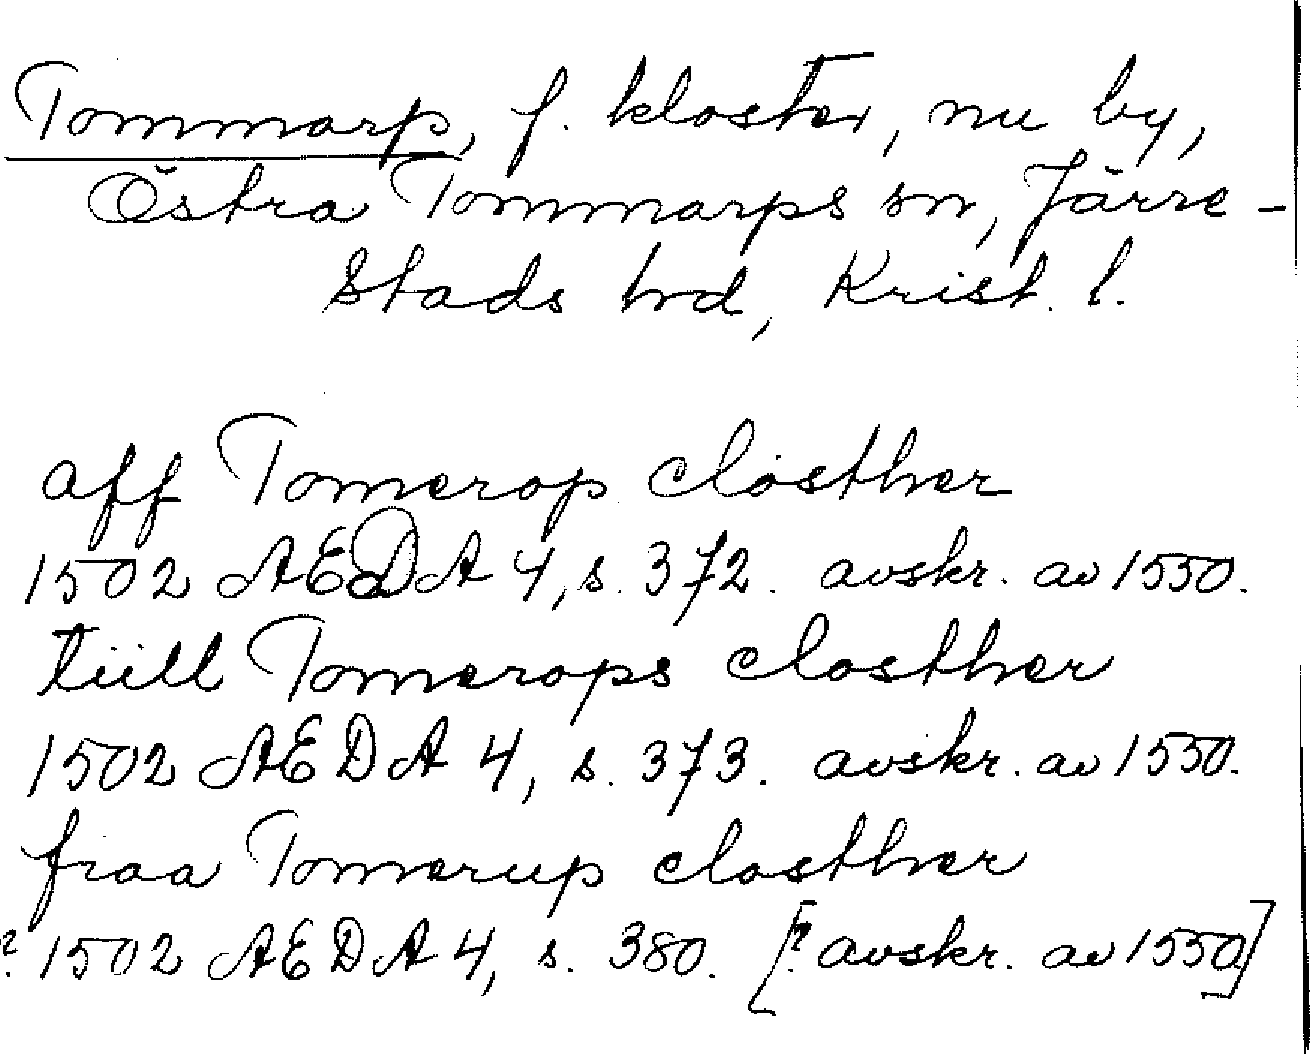 Tommarp, f. kloster, nu by,
Östra Tommarps sn, Järre-
stads hd, Krist. l.
aff Tomerop closther
1502 AEDA 4, s. 372. avskr. av 1550.
tiill Tomerops closther
1502 AEDA 4, s. 373. avskr. av 1550.
fraa Tomerup closther
? 1502 AEDA 4, s. 380. [? avskr. av 1550]